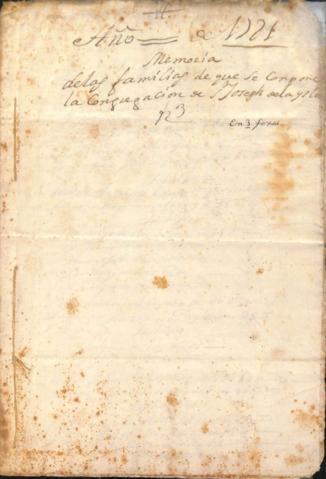 Año de 1771
Memoria
delas familias de que se Compone
la Congregacion de S Joseph dela Ysla
N 3
Con 3 foxas